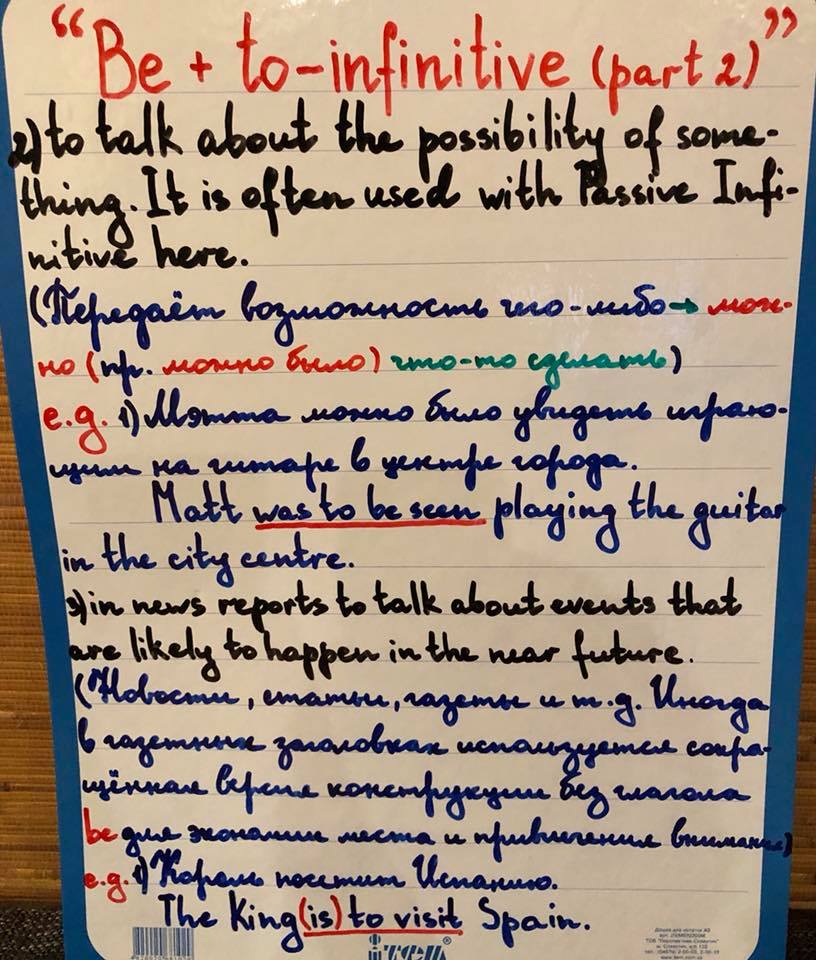 “Be + to-infinitive (part 2)”
2) to talk about the possibility of some-
thing. It is often used with Passive Infi-
nitive here.
(Передаёт возможность что-либо → мож-
но (пр. можно было) что-то сделать)
e.g. 1) Мэтта можно было увидеть играю-
щим на гитаре в центре города.
Matt was to be seen playing the guitar
in the city centre.
3) in news reports to talk about events that
are likely to happen in the near future.
(Новости, статьи, газеты и т.д. Иногда
в газетных заголовках используется сокра-
щённая версия конструкции без глагола
be для экономии места и привлечения внимания)
e.g. 1) Король посетит Испанию.
The King (is) to visit Spain.